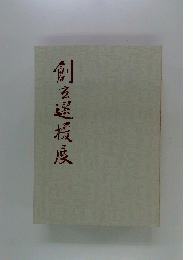 創玄選抜展